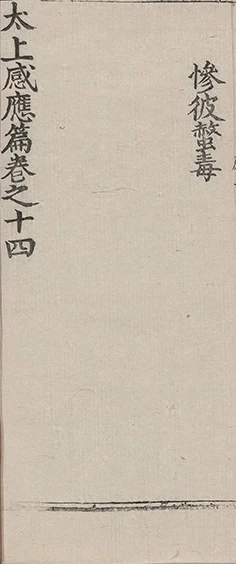 慘彼螫毒
太上感應篇卷之十四